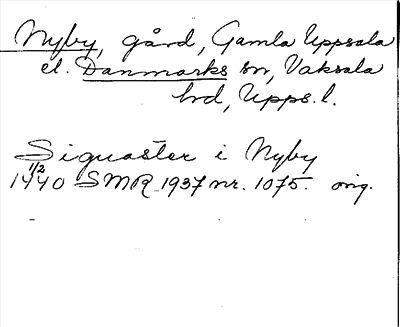 Nyby, gård, Gamla Uppsala
el. Danmarks sn, Vaksala
hd, Upps. l.
Siguaster i Nyby
1/2 1440 SMR 1937 nr. 1075. orig.